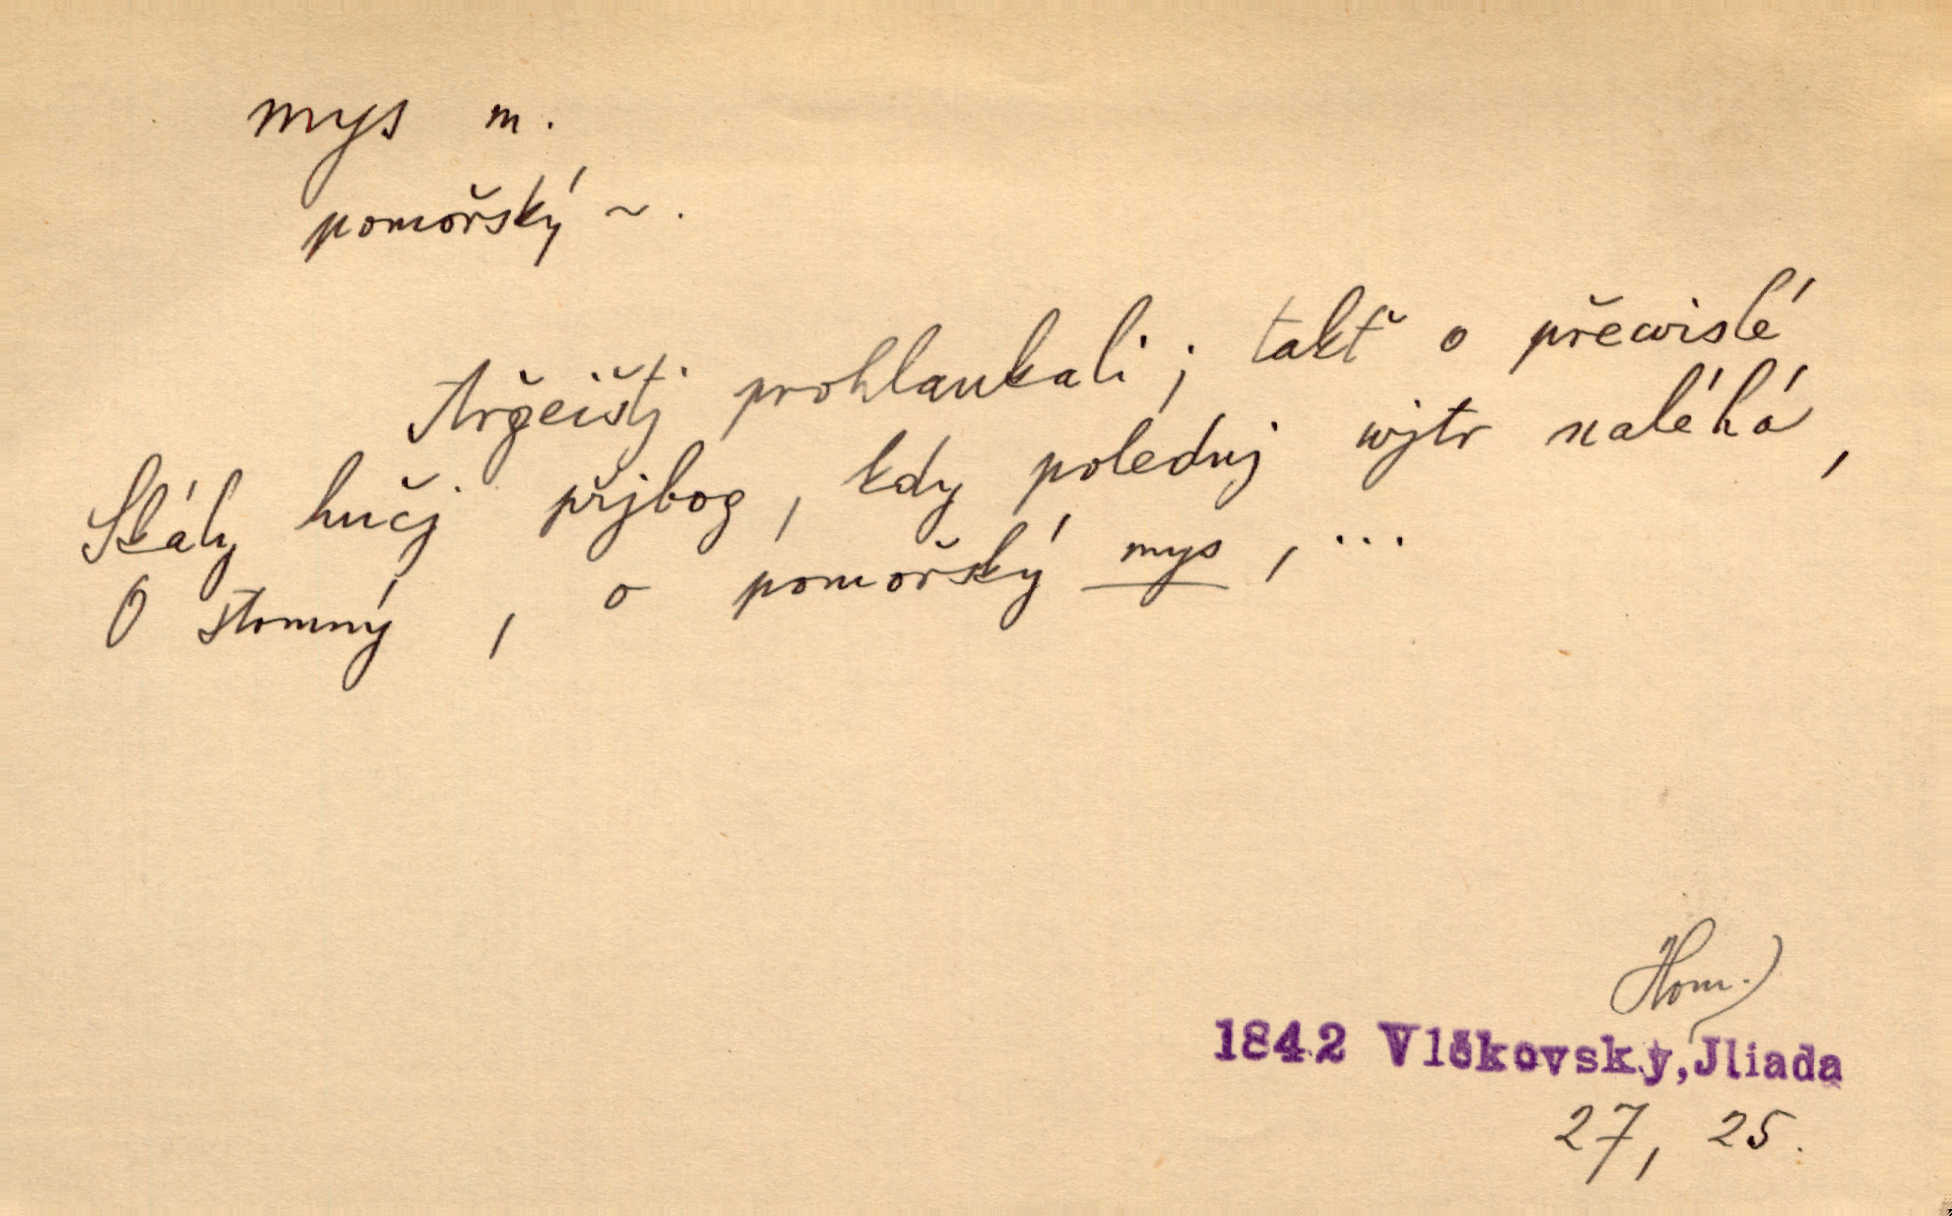 mys m.
pomořský ~.
Arğeištj prohlaukali; takť o přewislé
Skály hučj přjbog, kdy polednj wjtr naléhá,
O stomný, o pomořský mys, ...
Hom.)
1842 Vlčkovský, Jliada
27, 25.